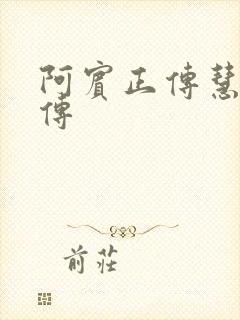 阿賓正傳慧
傳
前莊